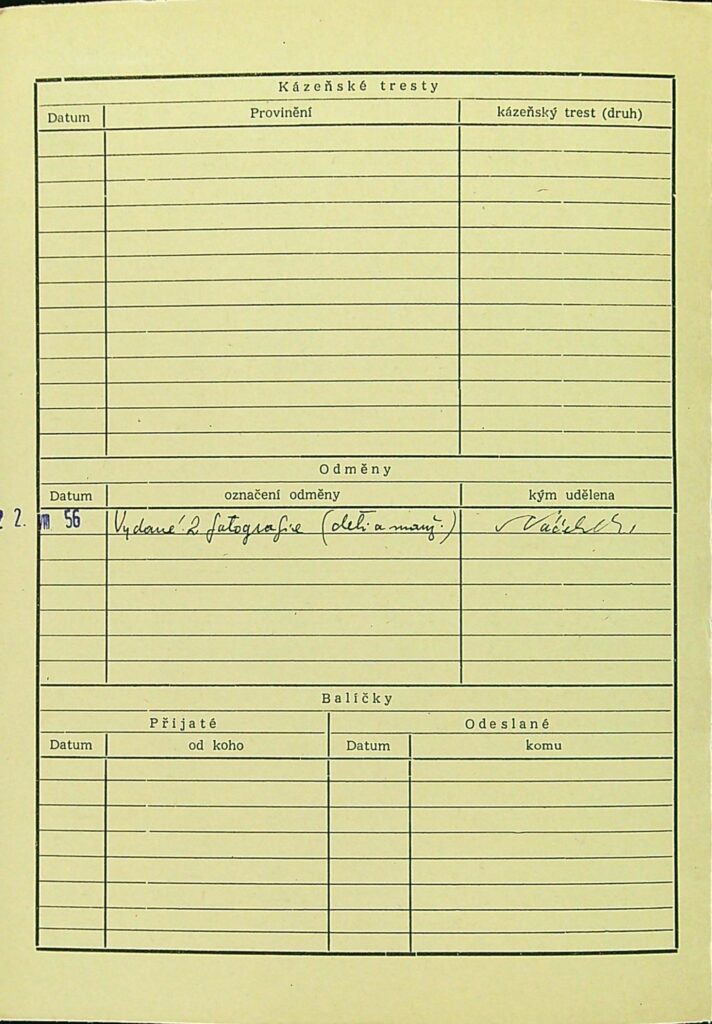 Kázeňské tresty
Datum Provinění kázeňský trest (druh)
Odměny
Datum označení odměny kým udělena
22. VIII 56 Vydané 2 fotografie (děti a manž.)
Balíčky
Přijaté Odeslané
Datum od koho Datum komu